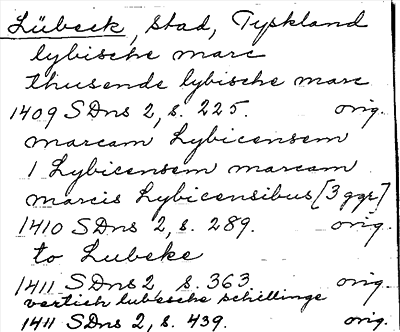 Lübeck, stad, Tyskland
lybische marc
thusende lybische marc
1409 SDns 2, s. 225. orig.
marcam Lybicensem
1 Lybicensem marcam
marcis Lybicensibus [3 ggr]
1410 SDns 2, s. 289. orig.
to Lubeke
1411 SDns 2 s. 363. orig.
vertich lubesche schillinge
1411 SDns 2, s. 439. orig.